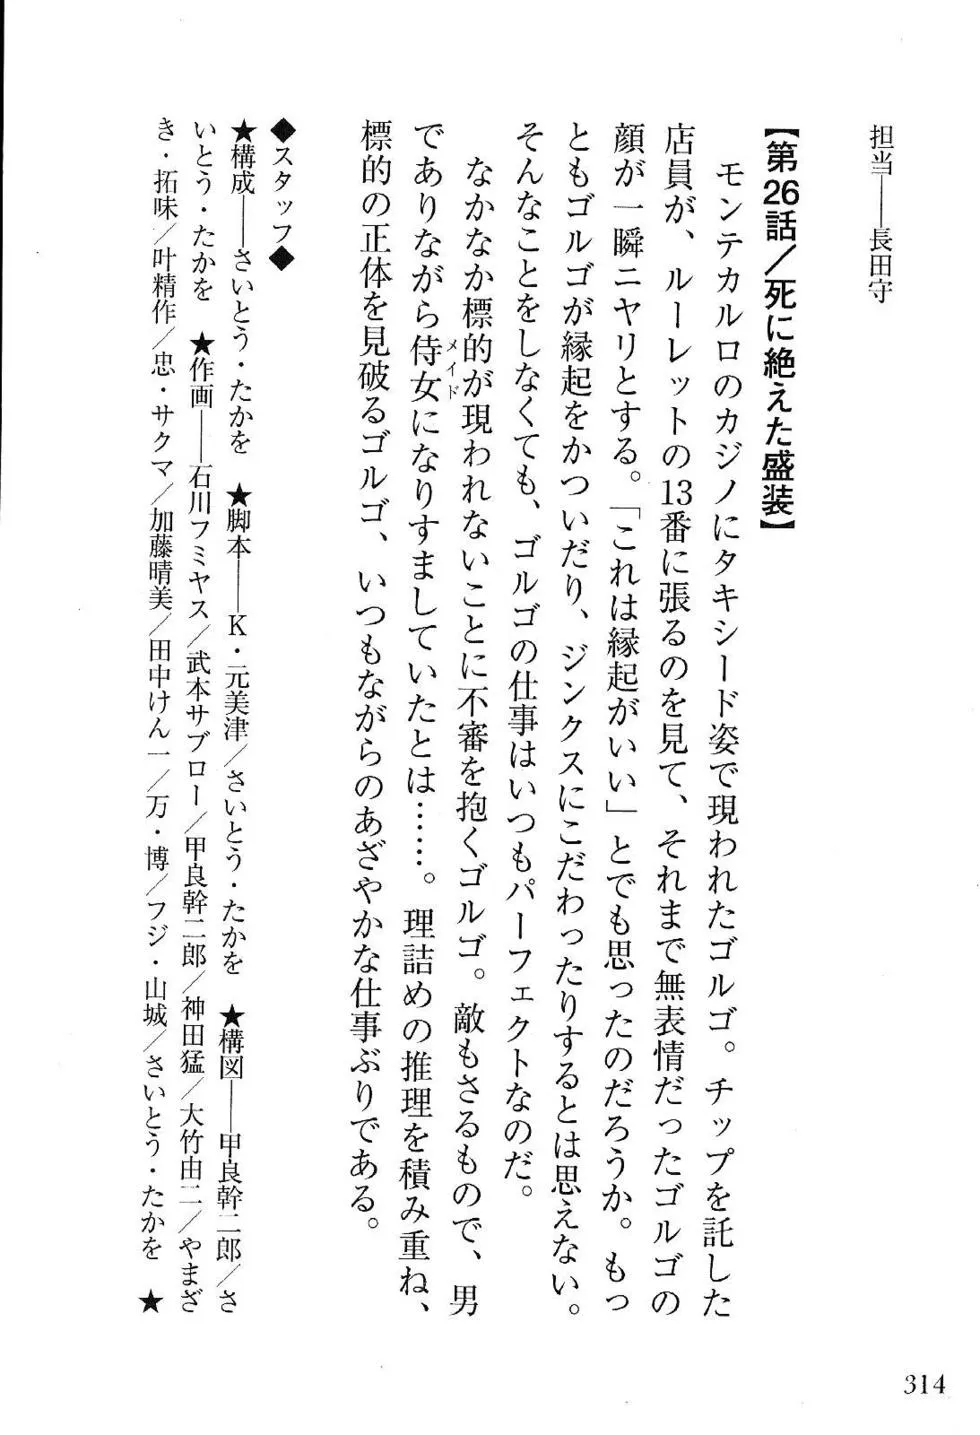 担当――長田守
【第26話／死に絶えた盛装】
モンテカルロのカジノにタキシード姿で現われたゴルゴ。チップを託した
店員が、ルーレットの13番に張るのを見て、それまで無表情だったゴルゴの
顔が一瞬ニヤリとする。「これは縁起がいい」とでも思ったのだろうか。もっ
ともゴルゴが縁起をかついだり、ジンクスにこだわったりするとは思えない。
そんなことをしなくても、ゴルゴの仕事はいつもパーフェクトなのだ。
なかなか標的が現われないことに不審を抱くゴルゴ。敵もさるもので、男
でありながら侍女メイドになりすましていたとは……。理詰めの推理を積み重ね、
標的の正体を見破るゴルゴ、いつもながらのあざやかな仕事ぶりである。
◆スタッフ◆
★構成――さいとう・たかを　★脚本――K・元美津／さいとう・たかを　★構図――甲良幹二郎／さ
いとう・たかを　★作画――石川フミヤス／武本サブロー／甲良幹二郎／神田猛／大竹由二／やまざ
き・拓味／叶精作／忠・サクマ／加藤晴美／田中けん一／万・博／フジ・山城／さいとう・たかを　★
314